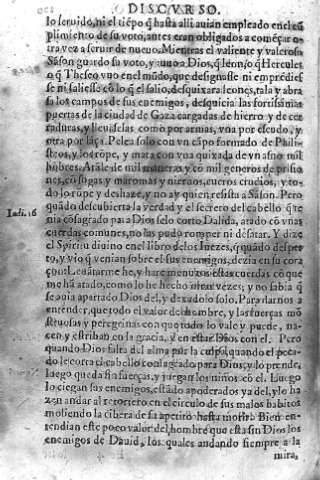 DISCVRSO.
lo seruido, ni el tiẽpo q̃ hasta alli auian empleado en el cũ
plimiento de su voto, antes eran obligados a começar o-
tra vez a seruir de nueuo. Mientras el valiente y valeroso
Sãson guardó su voto, y a Dios, q̃ leon, o q̃ Hercules
o q̃ Theseo vuo en el mũdo, que designasse ni emprẽdies-
se ni saliesse cõ lo q̃ el salio, desquixara leones, tala y abra
sa los campos de sus enemigos, desquicia las fortissimas
puertas de la ciudad de Gaza cargadas de hierro y de cer
raduras, y lleuaselas como por armas, vna por escudo, y
otra por lãça. Pelea solo con vn cãpo formado de Phili-
steos, y los rõpe, y mata con vna quixada de vn asno mil
hõbres. Atãle de mil maneras y cõ mil generos de prisio
nes, cõ sogas y maromas y neruios, cueros crudios, y to-
do lo rõpe y deshaze, y no ay quien resista a Sãson. Pero
quãdo descubierta la verdad y el secreto del cabello q̃ te
nia cõsagrado para Dios selo corto Dalida, atado cõ vnas
Iudi. 16
cuerdas comunes, no las pudo romper ni desatar. Y dize
el Spiritu diuino en el libro de los Iuezes, q̃ quãdo desper
to, y vio q̃ venian sobre el sus enemigos, dezia en su cora
çon: Leuãtarme he, y hare menuzos estas cuerdas cõ que
me hã atado, como lo he hecho otras vezes; y no sabia q̃
se auia apartado Dios del, y dexadolo solo. Para darnos a
entender, que todo el valor de hombre, y las fuerças mõ
struosas y peregrinas con que todo lo vale y puede, na-
cen y estriban en la gracia, y en estar Dios con el. Pero
quando Dios falta del alma por la culpa, quando el peca-
do le corta el cabello consagrado para Dios, y lo prende,
luego queda sin fuerças, y juegan los niños cõ el. Luego
lo ciegan sus enemigos, estãdo apoderados ya del, y lo ha
zen andar al retortero en el circulo de sus malos habitos
moliendo la cibera de su apetito hasta morir. Bien en-
tendian este poco valor del hombre que esta sin Dios los
enemigos de Dauid, los quales andando siempre a la
mira,